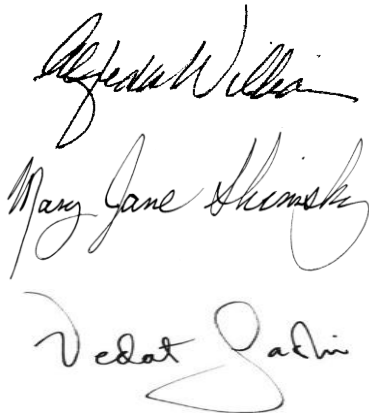 Alfreda Williams
Mary Jane Shimsky
Vedat Gashi